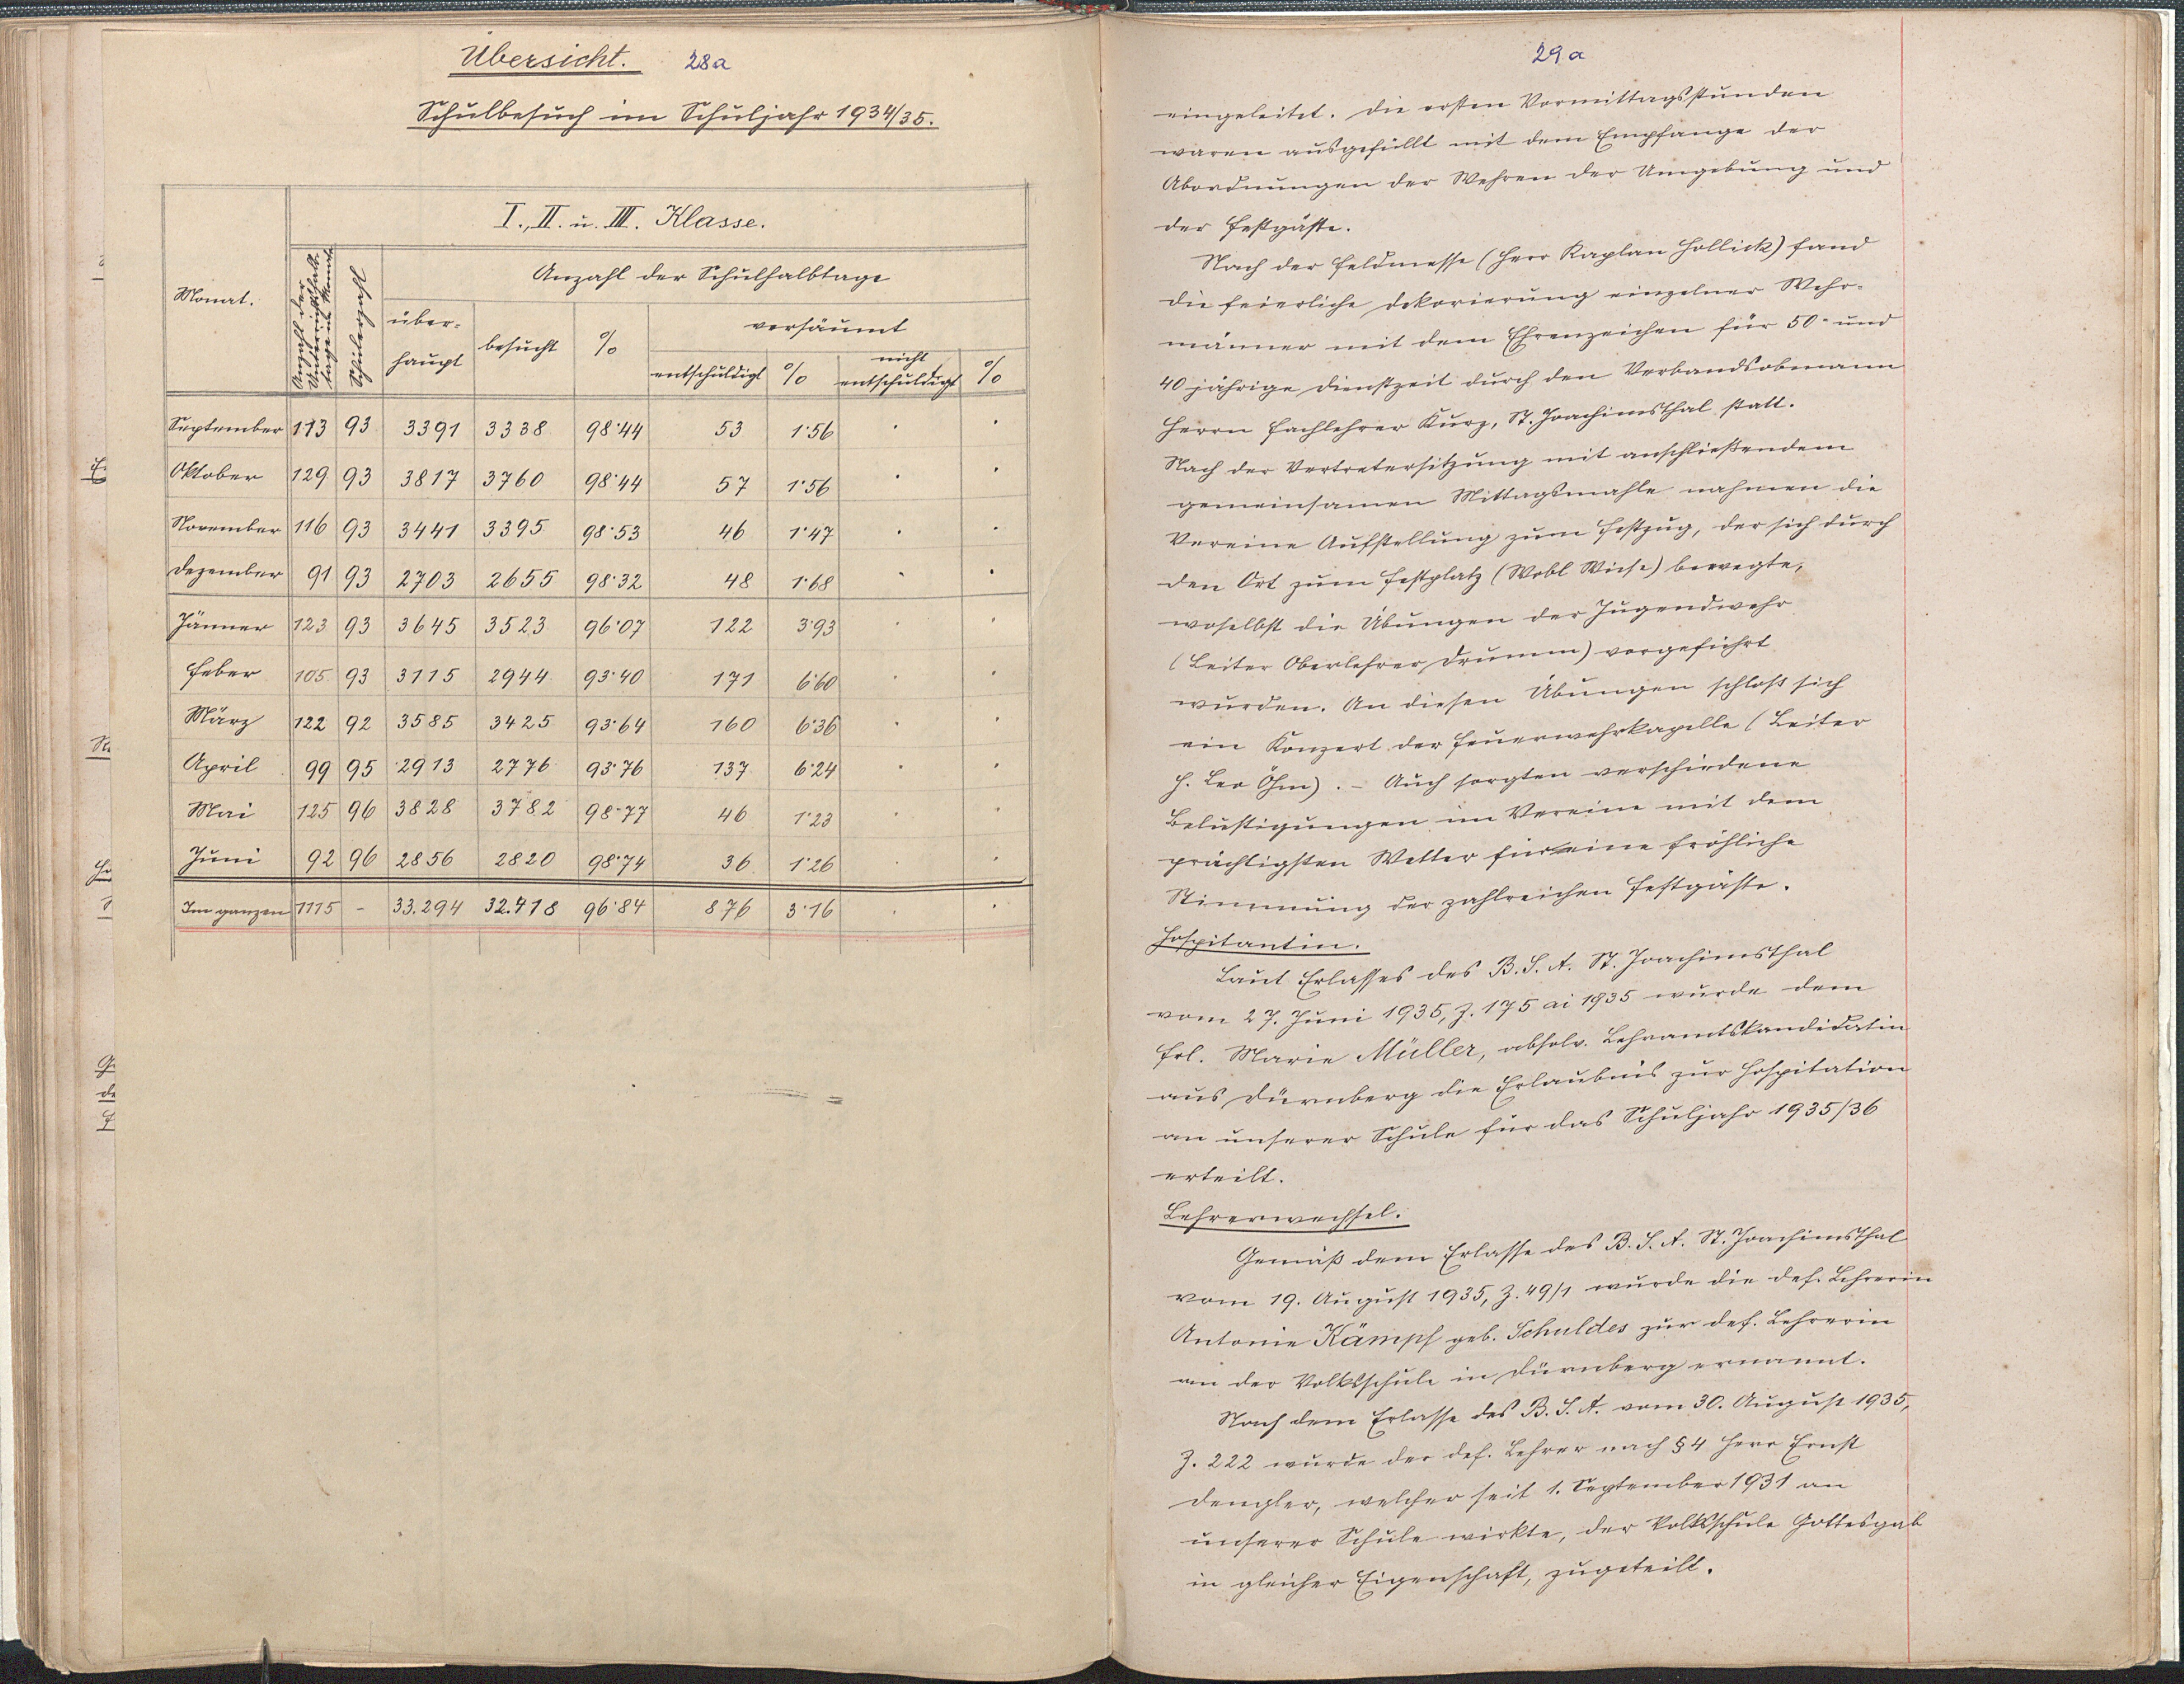 Übersicht. 28a
Schulbesuch im Schuljahr 1934/35.
I., II. u. III. Klasse.
Monat.
Anzahl der Unterrichtshalbtage im Monat
Schülerzahl
Anzahl der Schulhalbtage
überhaupt
besucht
%
versäumt
entschuldigt % nicht entschuldigt %
September 113 93 3391 3338 98·44 53 1·56 · ·
Oktober 129 93 3817 3760 98·44 57 1·56 · ·
November 116 93 3441 3395 98·53 46 1·47 · ·
Dezember 91 93 2703 2655 98·32 48 1·68 · ·
Jänner 123 93 3645 3523 96·07 122 3·93 · ·
Feber 105 93 3115 2944 93·40 171 6·60 · ·
März 122 92 3585 3425 93·64 160 6·36 · ·
April 99 95 2913 2776 93·76 137 6·24 · ·
Mai 125 96 3828 3782 98·77 46 1·23 · ·
Juni 92 96 2856 2820 98·74 36 1·26 · ·
Im ganzen 1115 - 33.294 32.418 96·84 876 3·16 · ·
29a
eingeleitet. Die ersten Vormittagsstunden
waren ausgefüllt mit dem Empfange der
Abordnungen der Wehren der Umgebung und
der Festgäste.
Nach der Feldmesse (Herr Kaplan Hollick) fand
die feierliche Dekorierung einzelner Wehr-
männer mit dem Ehrenzeichen für 50- und
40 jährige Dienstzeit durch den Verbandsobmann
Herrn Fachlehrer Kurz, St. Joachimsthal statt.
Nach der Vertretersitzung mit anschließendem
gemeinsamen Mittagsmahle nahmen die
Vereine Aufstellung zum Festzug, der sich durch
den Ort zum Festplatz (Wobl Wiese) bewegte,
woselbst die Übungen der Jugendwehr
(Leiter Oberlehrer Drumm) vorgeführt
wurden. An diesen Übungen schloß sich
ein Konzert der Feuerwehrkapelle (Leiter
H. Leo Öhm). - Auch sorgten verschiedene
Belustigungen im Vereine mit dem
prächtigsten Wetter für eine fröhliche
Stimmung der zahlreichen Festgäste.
Hospitantin.
Laut Erlasses des B.S.A. St. Joachimsthal
vom 27. Juni 1935, Z. 175 ai 1935 wurde dem
Frl. Marie Müller, absolv. Lehramtskandidatin
aus Dürnberg die Erlaubnis zur Hospitation
an unserer Schule für das Schuljahr 1935/36
erteilt.
Lehrerwechsel.
Gemäß dem Erlasse des B.S.A. St. Joachimsthal
vom 19. August 1935, Z. 49/1 wurde die def. Lehrerin
Antonie Kämpf geb. Schuldes zur def. Lehrerin
an der Volksschule in Dürnberg ernannt.
Nach dem Erlasse des B.S.A. vom 30. August 1935,
Z. 222 wurde der def. Lehrer nach § 4 Herr Ernst
Dengler, welcher seit 1. September 1931 an
unserer Schule wirkte, der Volksschule Gottesgab
in gleicher Eigenschaft, zugeteilt.